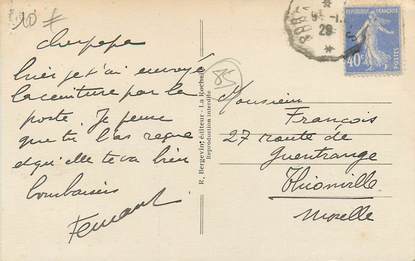 cher pepe
hier je t'ai envoyé
la ceinture par la
poste. Je pense
que tu l'as reçue
et qu'elle te va bien
bons baisers
Fernand
R. Bergevin, éditeur - La Rochelle
Reproduction interdite
85
Monsieur
François
27 route de
Guentrange
Thionville
Moselle
29
RÉPUBLIQUE FRANÇAISE
40
POSTES